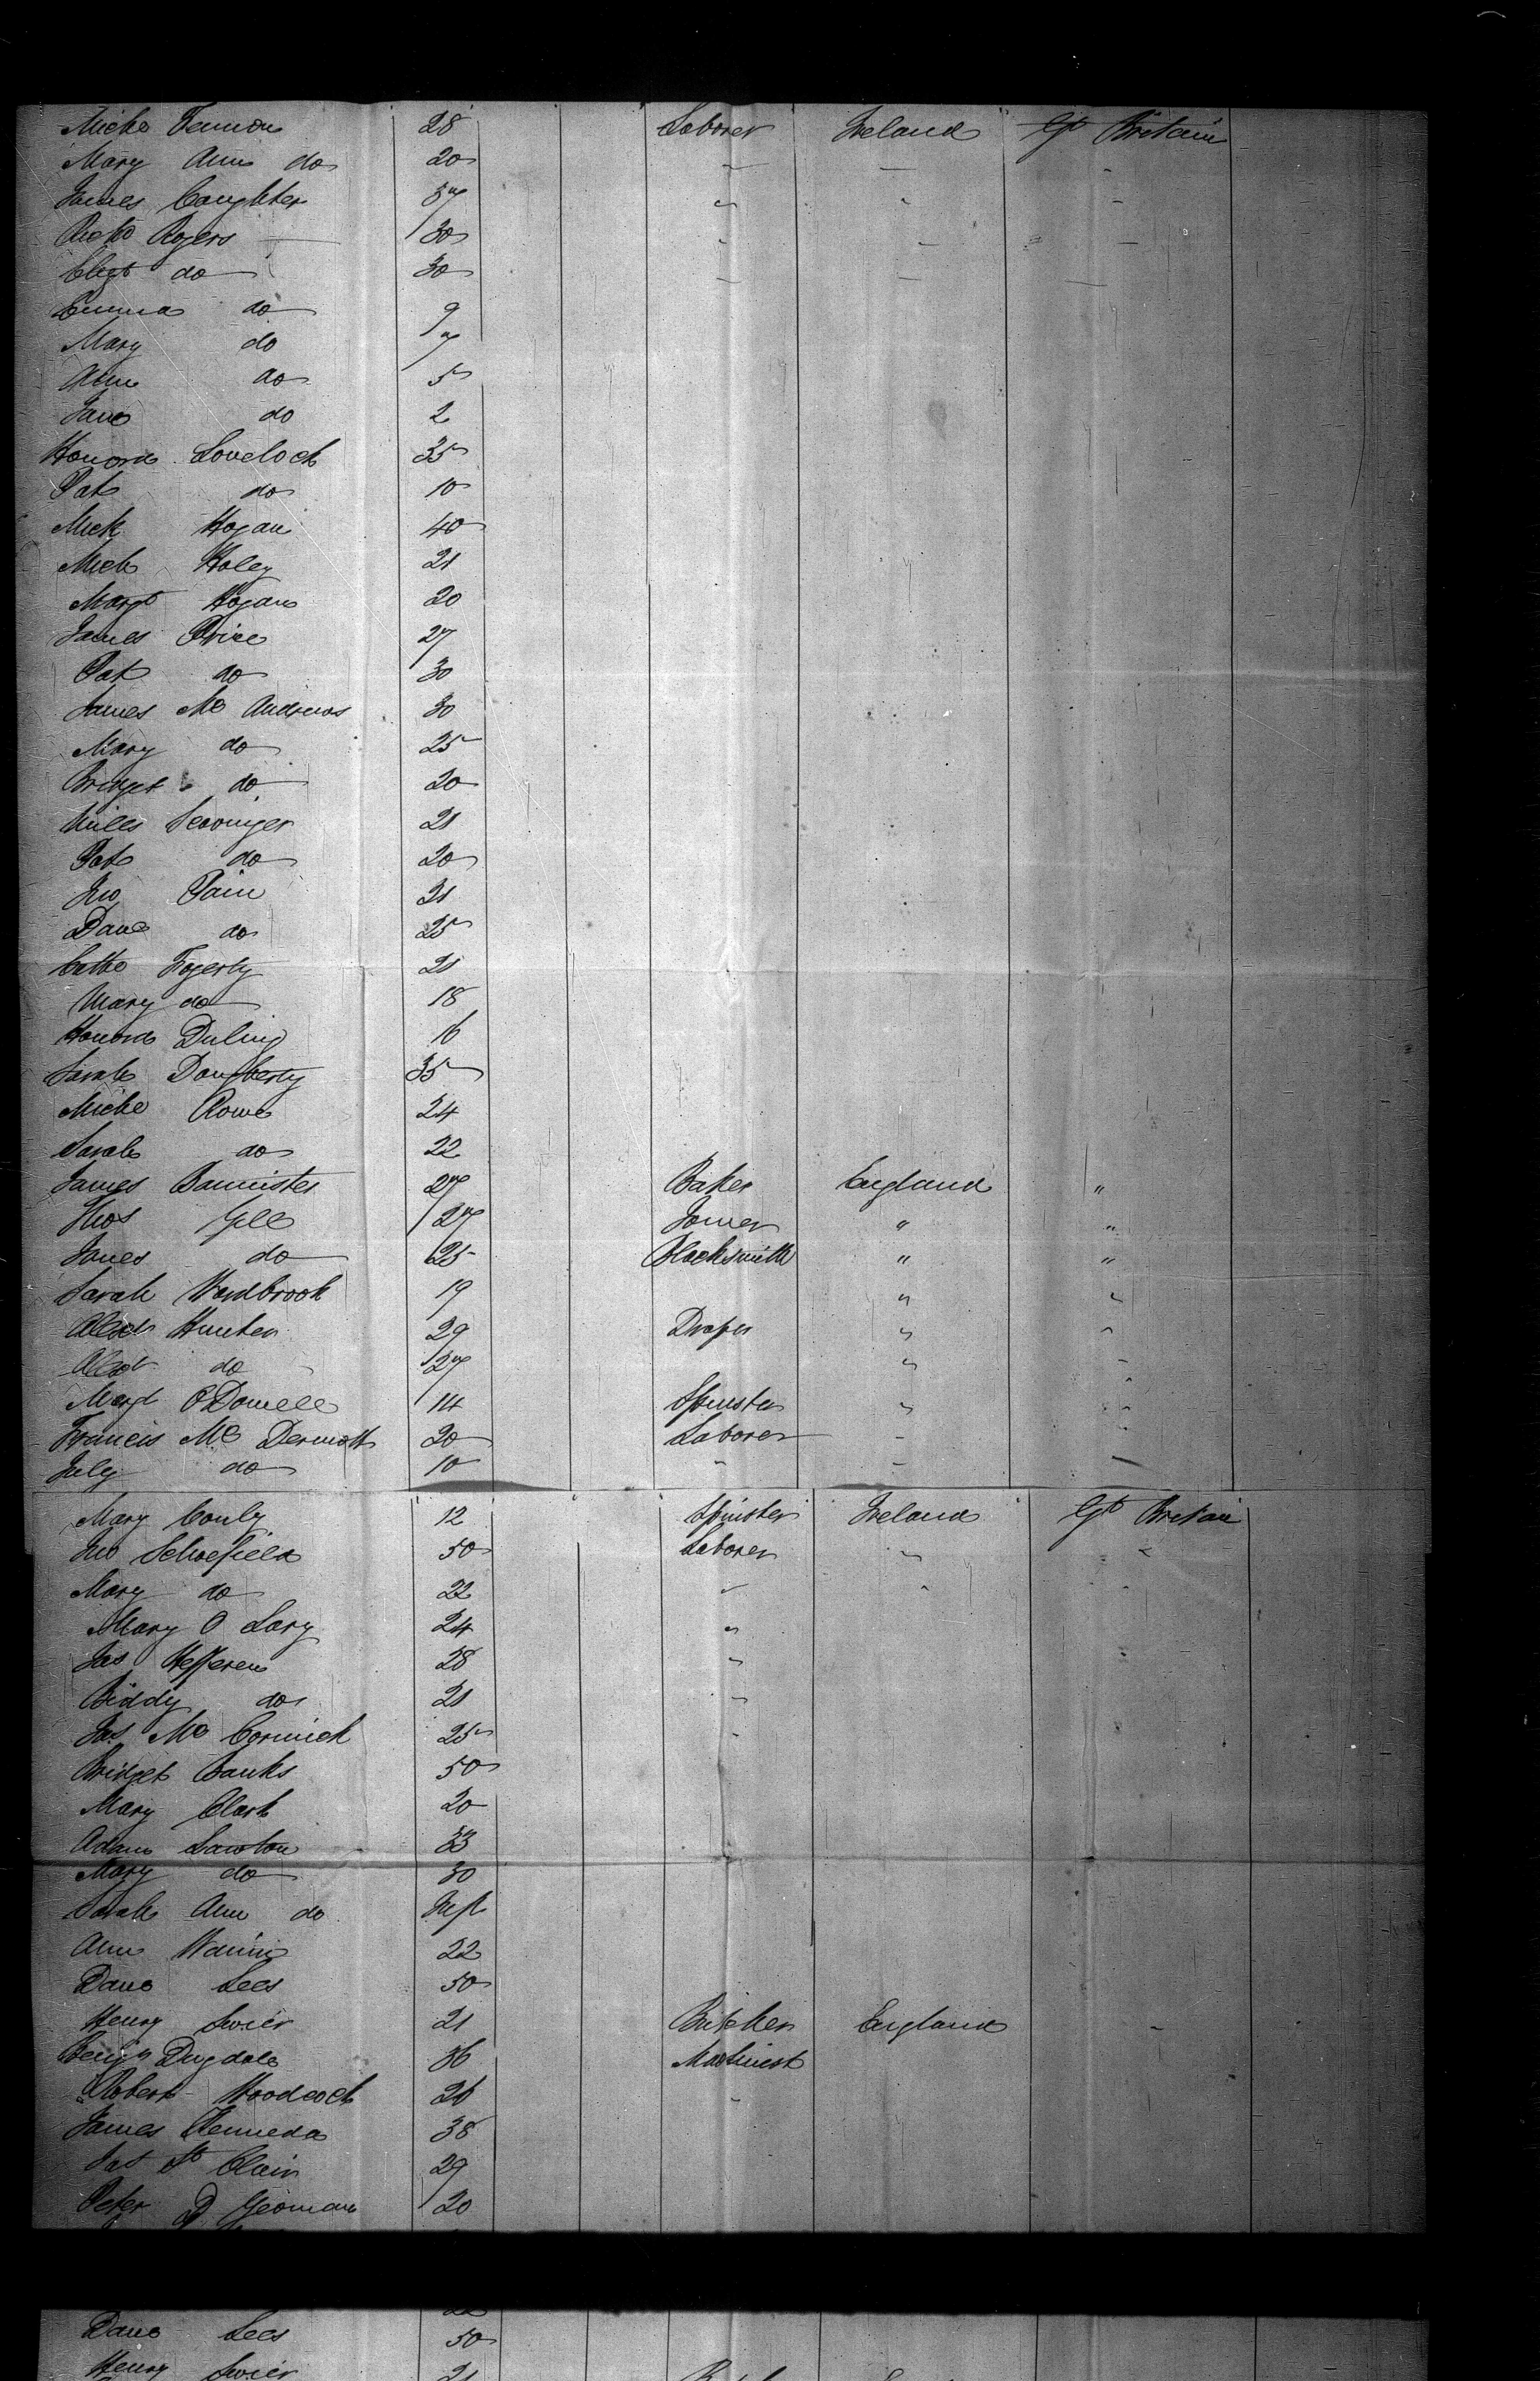 Mick Fennon 28 Laborer Ireland Gt Britain
Mary Ann do 20 " " "
James Caughter 57 " " "
Richd Rogers 30 " " "
Elizt do 30 " " "
Emma do 9
Mary do 7
Ann do 5
Jane do 2
Honora Lovelock 35
Pat do 10
Mick Hogan 40
Mick Holey 21
Margt Hogan 20
James Price 27
Pat do 30
James Mc Andrews 30
Mary do 25
Bridget do 20
Miles 21
Pat do 20
Jno Pain 21
Dane do 25
Cathe Fogerty 21
Mary do 18
Honora Duling 16
Sarah Dougherty 35
Miche Rowe 24
Sarah do 22
James Bannister 27 Baker England "
Thos Gell 27 Joiner " "
James do 25 Blacksmith " "
Sarah Wardbrook 19 " "
Alexdr Hunter 29 Draper " "
Alexdr do 27 " "
Margt O'Donnell 14 Spinster " "
Francis Mc Dermott 20 Laborer " "
July do 10 " " "
Mary Conly 12 Spinster Ireland Gt Britain
Jno Schoefield 50 Laborer " "
Mary do 22 " " "
Mary O Lary 24 "
Jas Hefferen 28 "
Biddy do 21 "
Jas Mc Cormick 25 "
Bridget Banks 50
Mary Clark 20
Adam Lawton 33
Mary do 30
Sarah Ann do Inft
Ann 22
Dane Lees 50
Henry Swier 21 Butcher England "
Benjn Dugdale 36 Machinest
Robert Woodcock 26 "
James Kenneda 38
Jas St Clair 29
Peter D Yeoman 20
Dane Lees 50
Henry Swier 21